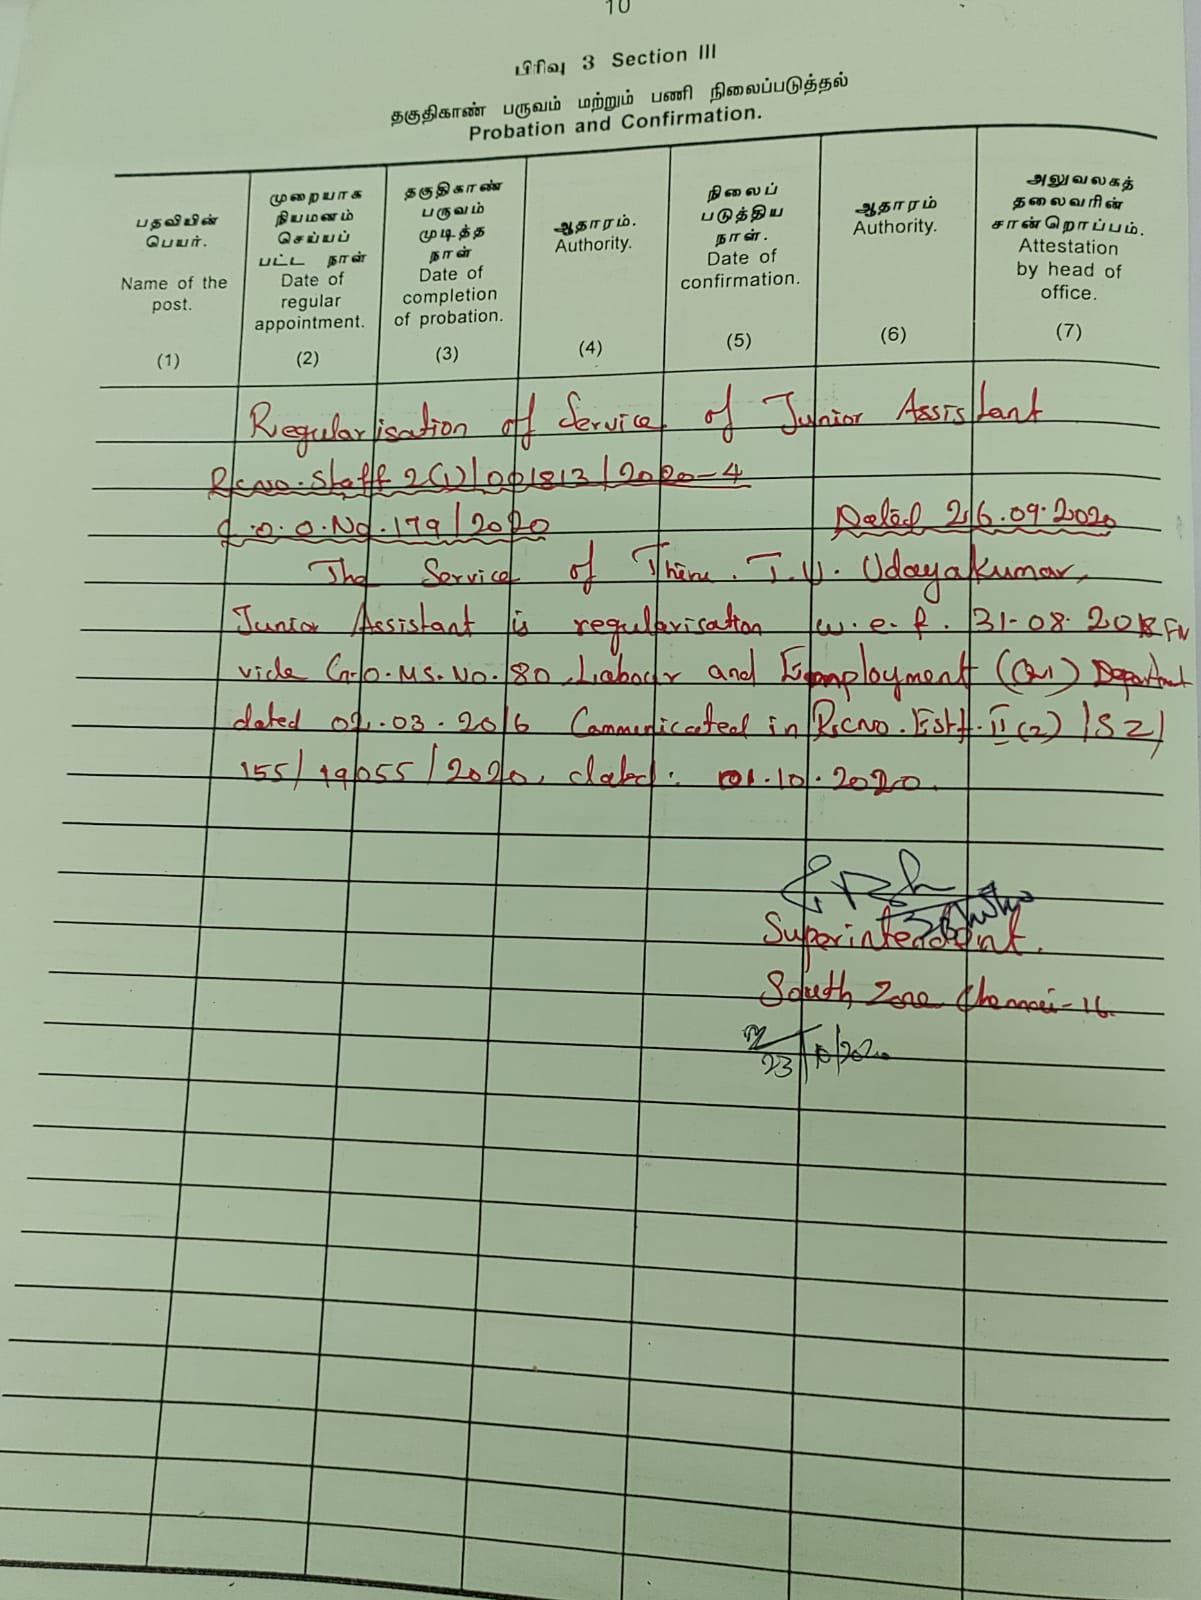 10
பிரிவு 3 Section III
தகுதிகாண் பருவம் மற்றும் பணி நிலைப்படுத்தல்
Probation and Confirmation.
பதவியின்
பெயர்.
Name of the
post.
(1)
முறையாக
நியமனம்
செய்யப்
பட்ட நாள்
Date of
regular
appointment.
(2)
தகுதிகாண்
பருவம்
முடித்த
நாள்
Date of
completion
of probation.
(3)
ஆதாரம்.
Authority.
(4)
நிலைப்
படுத்திய
நாள்.
Date of
confirmation.
(5)
ஆதாரம்
Authority.
(6)
அலுவலகத்
தலைவரின்
சான்றொப்பம்.
Attestation
by head of
office.
(7)
Regularisation of Service of Junior Assistant
Rcno. Staff 2(1)/001813/2020-4
C.O.O.No.179/2020 Dated 26.09.2020
The Service of Thiru. T.U. Udayakumar,
Junior Assistant is regularisation w.e.f. 31-08-2018 FN
vide G.O.MS.No.80, Labour and Employment Department
dated 02.03.2016 Communicated in Rcno. Estt. II(2)/SZ/
155/19055/2020, dated: 01.10.2020.
Superintendent.
South Zone Chennai-16.
23/10/2020